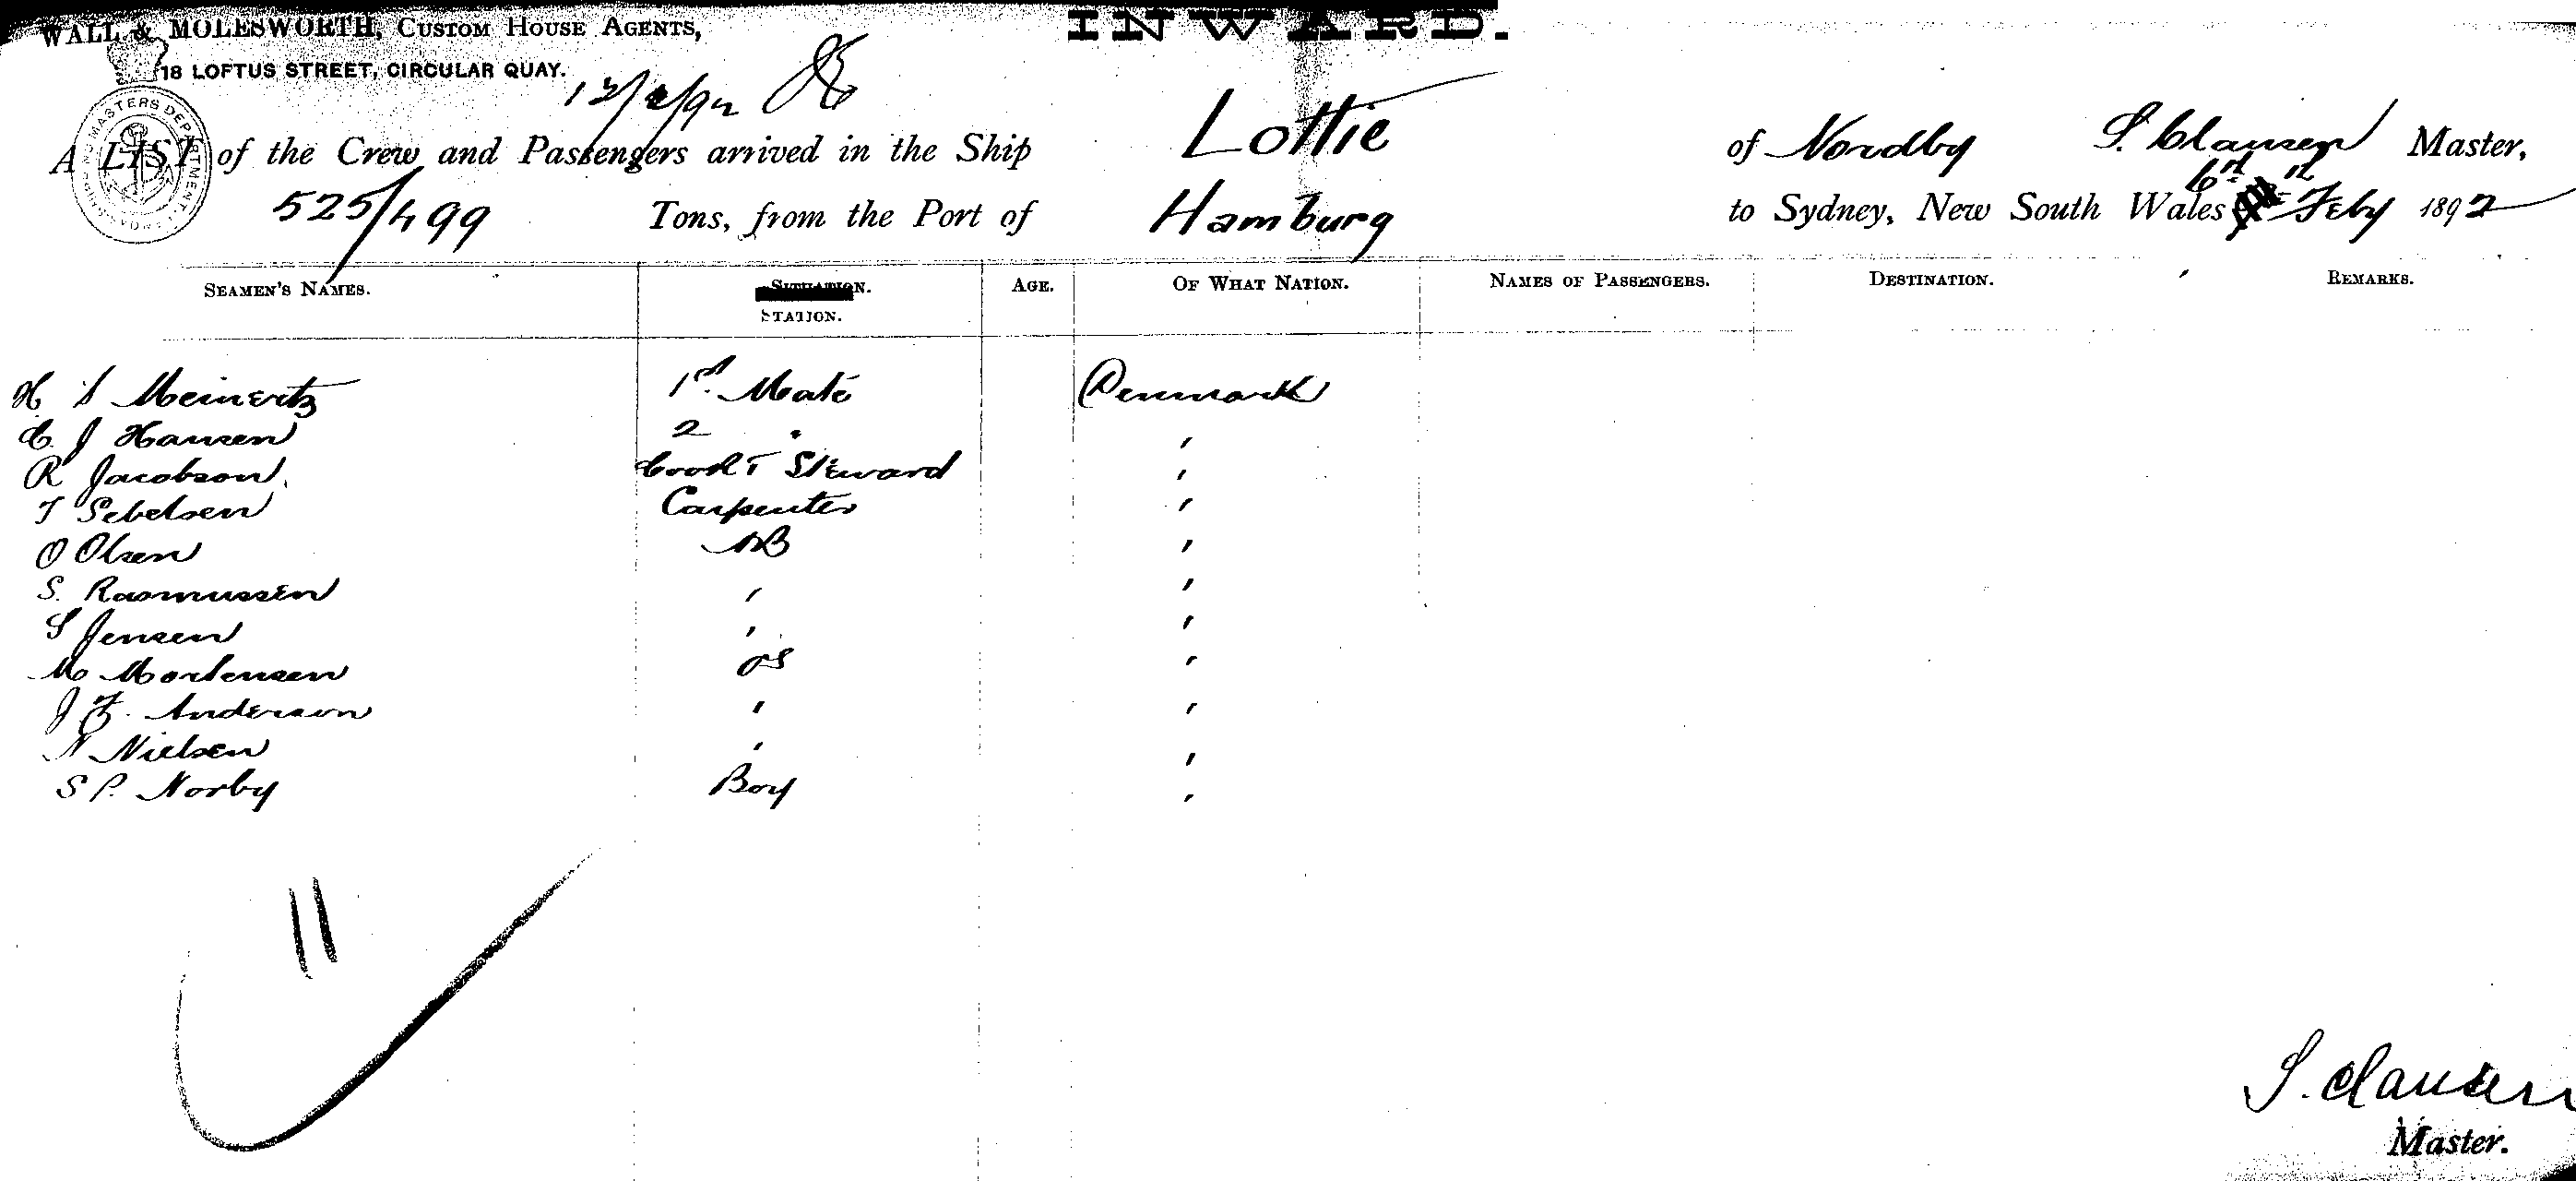 WALL & MOLESWORTH, CUSTOM HOUSE AGENTS,
INWARD.
18 LOFTUS STREET, CIRCULAR QUAY.
12/2/92
A LIST of the Crew and Passengers arrived in the Ship Lottie of Nordby S. Clausen Master,
525/499 Tons, from the Port of Hamburg to Sydney, New South Wales 6th Feby 1892
SEAMEN'S NAMES. SITUATION. AGE. OF WHAT NATION. NAMES OF PASSENGERS. DESTINATION. REMARKS.
STATION.
H S Meinertz 1st Mate Denmark
C. J Hansen 2 " "
R Jacobson. Cook & Steward "
T Sebelsen Carpenter "
O Olsen AB "
S. Rasmussen " "
S Jensen " "
M Mortensen OS "
J F. Anderson " "
N Nielsen " "
S P. Norby Boy "
11
S. Clausen
Master.